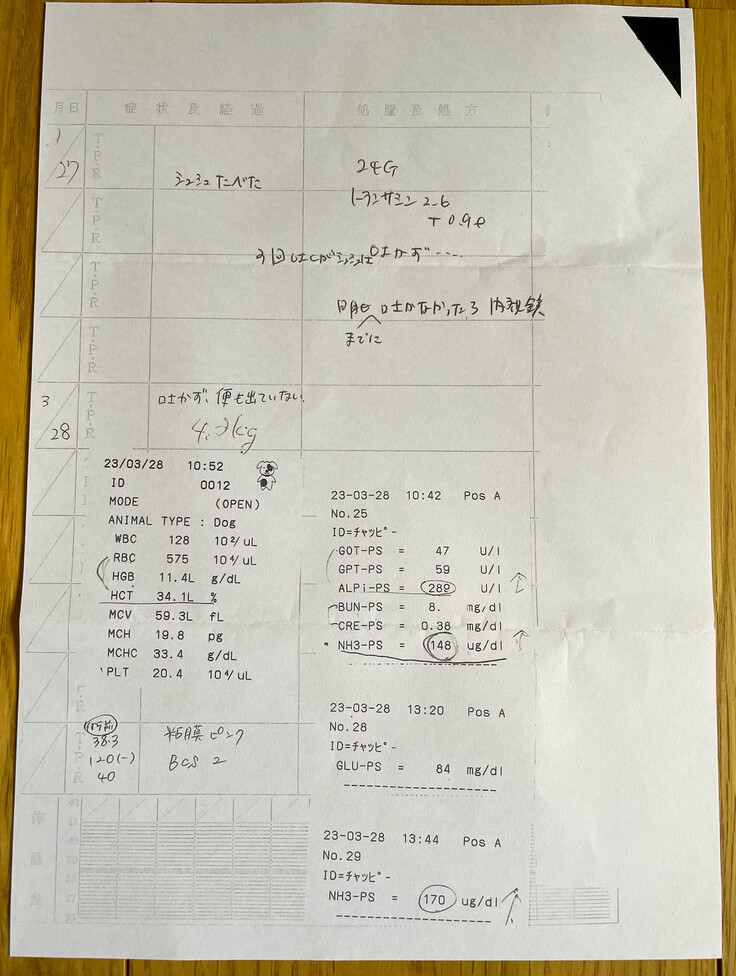 月日 症状及経過 処置及処方
27
T.P.R
シュシュ たべた
24G
トランサミン 2.6
T 0.9
T.P.R
3回
吐かず‥‥
T.P.R
明日 吐かなかったら 内視鏡
までに
T.P.R
3
28
T.P.R
吐かず、便も出ていない
kg
23/03/28 10:52
ID 0012
MODE (OPEN)
ANIMAL TYPE : Dog
WBC 128 10²/uL
RBC 575 10⁴/uL
HGB 11.4L g/dL
HCT 34.1L %
MCV 59.3L fL
MCH 19.8 pg
MCHC 33.4 g/dL
PLT 20.4 10⁴/uL
23-03-28 10:42 Pos A
No.25
ID=チャッピ-
GOT-PS = 47 U/l
GPT-PS = 59 U/l
ALPi-PS = 289 U/l ↑
BUN-PS = 8. mg/dl
CRE-PS = 0.38 mg/dl
NH3-PS = 148 ug/dl ↑
23-03-28 13:20 Pos A
No.28
ID=チャッピ-
GLU-PS = 84 mg/dl
T.P.R
38.3
120(-)
40
粘膜ピンク
BCS 2
23-03-28 13:44 Pos A
No.29
ID=チャッピ-
NH3-PS = 170 ug/dl ↑